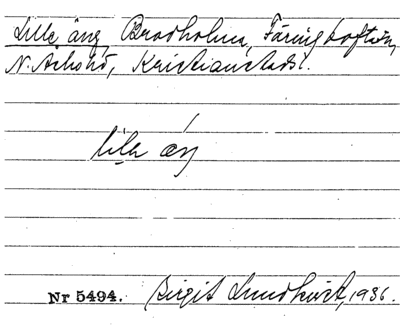 Lille äng, Brodholma, Färingtofta sn,
N. Åsbo hd, Kristianstads l.
lila äŋ
Nr 5494. Birgit Lundkvist, 1936.